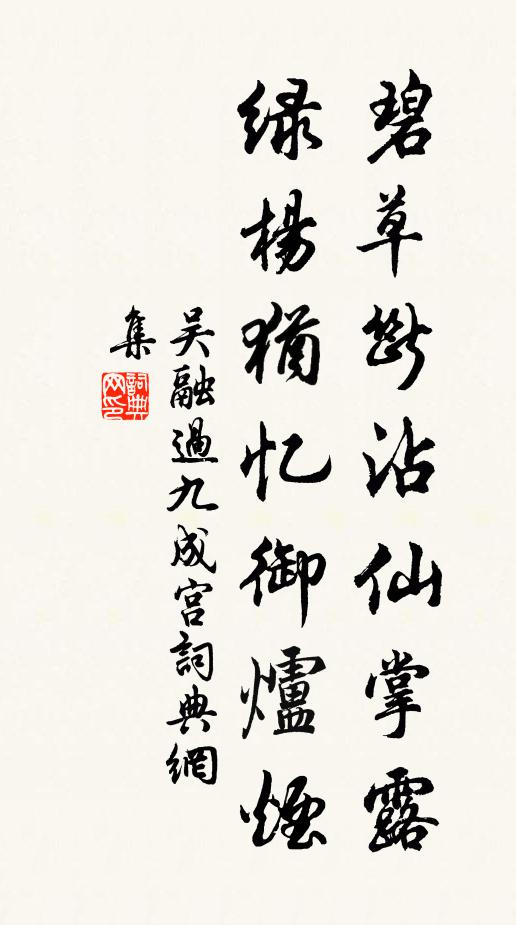 碧草斷沾仙掌露
緑楊猶忆御爐煙
吴融過九成宫詞典網
集
詞典网印